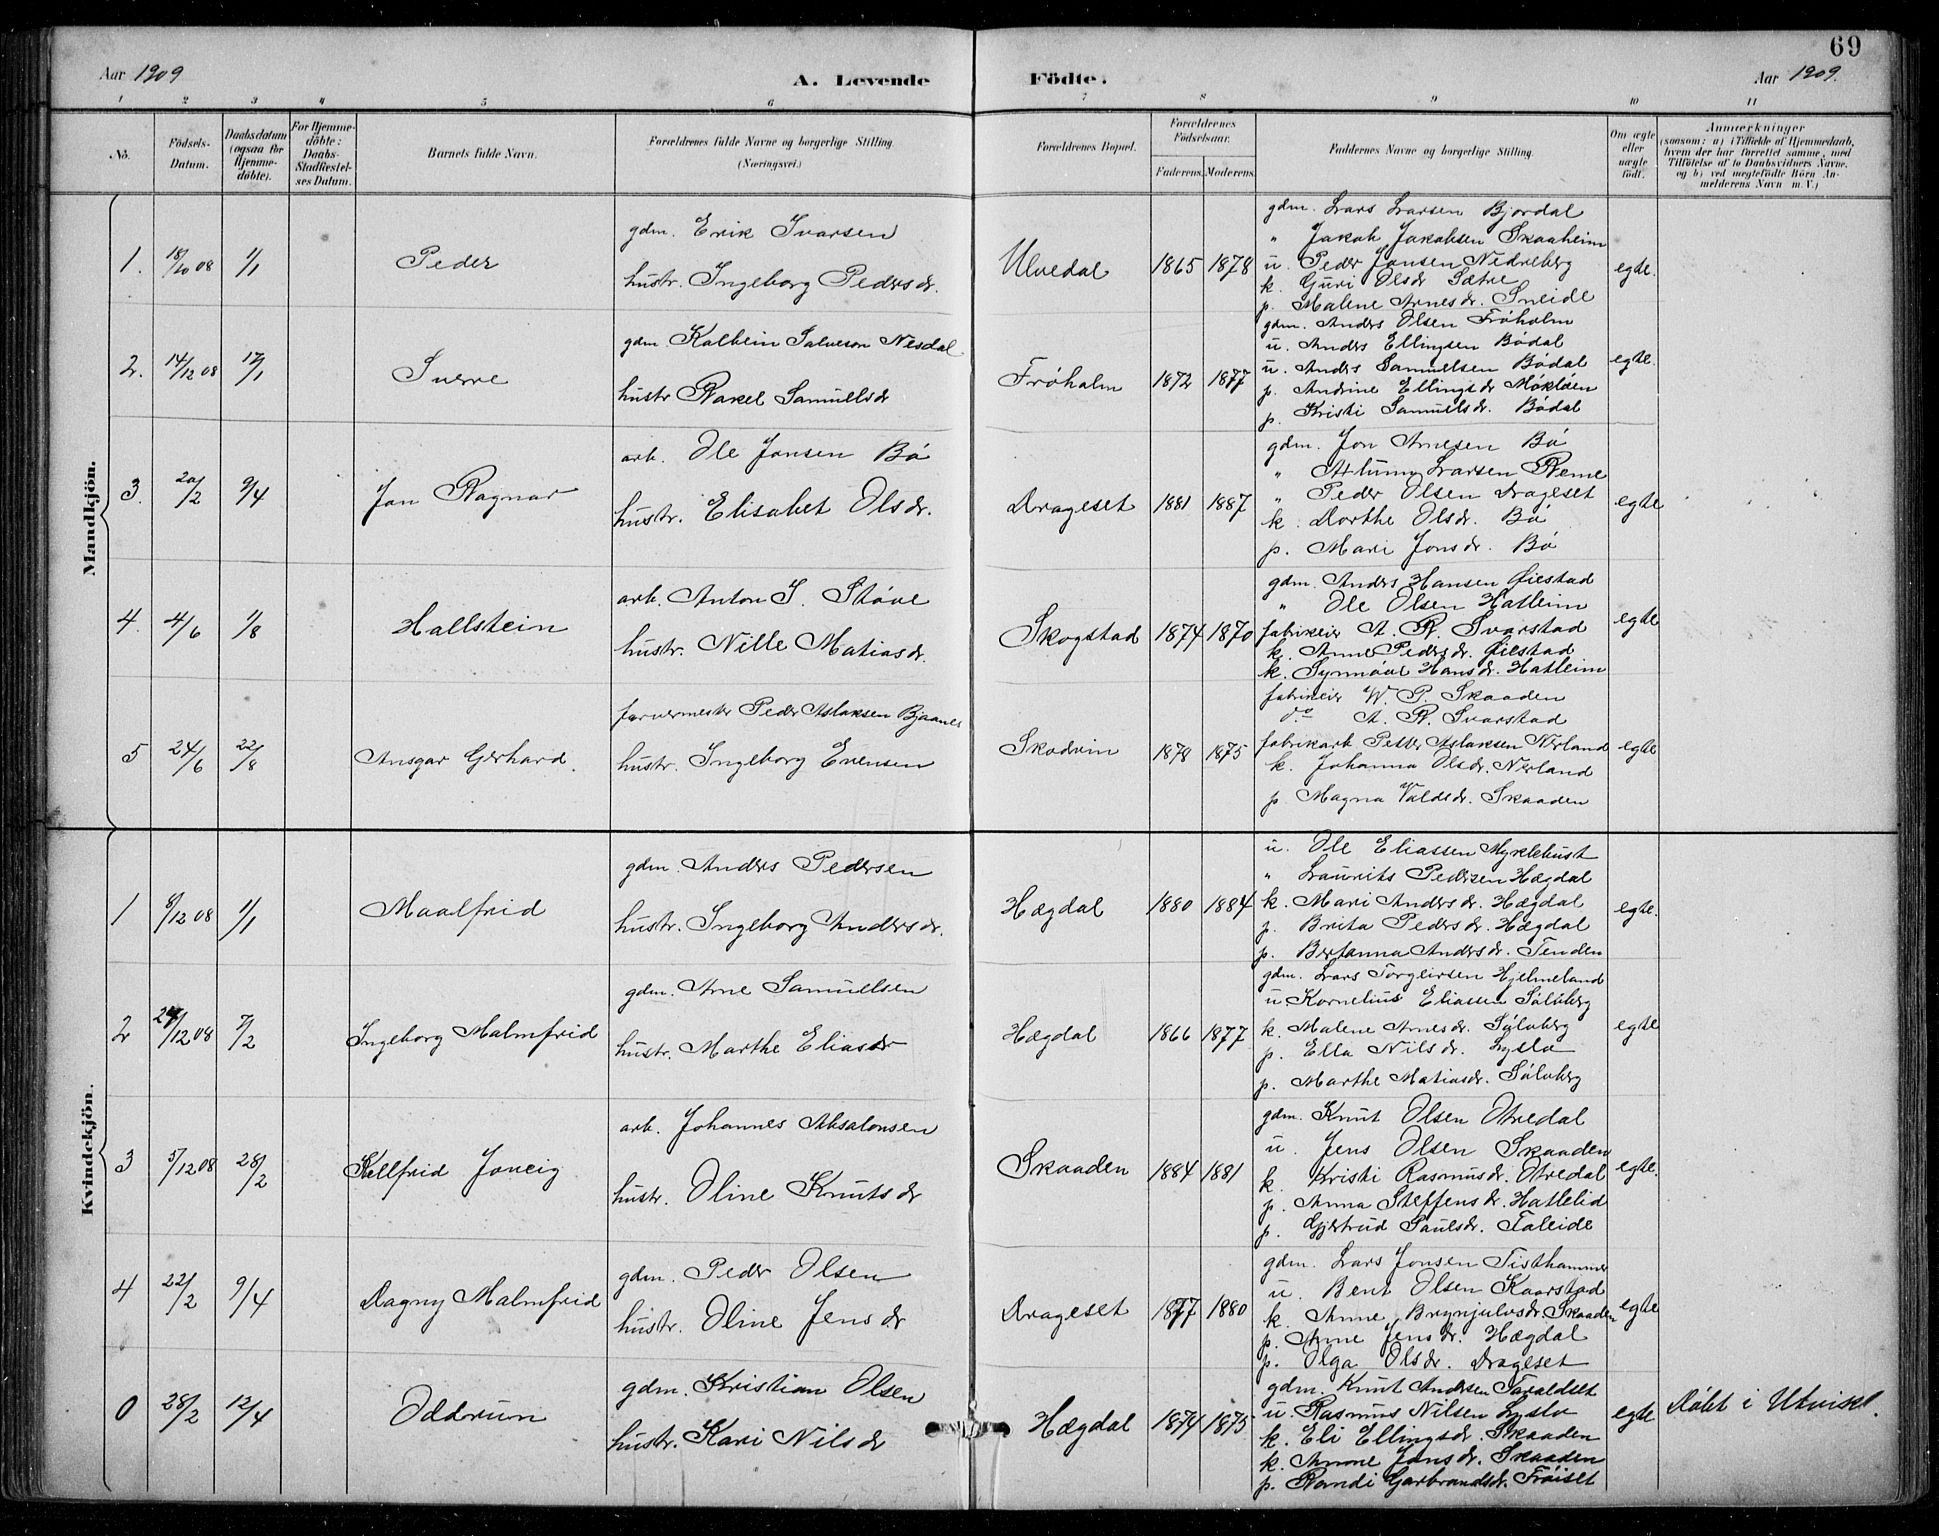 69
Aar 1909
A. Levende Födte.
Aar 1909.
1 2 3 4 5 6 7 8 9 10 11
No.
Födsels-Datum.
Daabsdatum (ogsaa for Hjemme-döbte).
For Hjemme-döbte: Daabs-Stadfæstel-ses Datum.
Barnets fulde Navn.
Forældrenes fulde Navne og borgerlige Stilling. (Næringsvei.)
Forældrenes Bopæl.
Forældrenes Födselsaar.
Faderens. Moderens.
Faddernes Navne og borgerlige Stilling.
Om ægte eller uægte födt.
Anmærkninger
(saasom: a) i Tilfælde af Hjemmedaab, hvem der har forrettet samme, med Tilföielse af to Daabsvidners Navne, og b) ved uægtefödte Börn An-melderens Navn m. V.)
Mandkjön.
1. 18/10 08 1/1 Peder
gdm. Erik Ivarsen
hustr. Ingeborg Pedersdr.
Ulvedal 1865 1878
gdm. Lars Larsen Bjordal
" Jakob Jakobsen Skaaheim
u. Peder Jonsen Nedreberg
k. Guri Olsdr Sætre
p. Malene Arnesdr. Sneide
egte.
2. 14/12 08 17/1 Sverre
gdm Kalhein Salveson Nesdal
hustr Rakel Samuelsdr
Frøholm 1872 1877
gdm. Anders Olsen Frøholm
u. Anders Ellingsen Bødal
u. Anders Samuelsen Bødal
p. Andrine Ellingsdr Møkløen
p. Kristi Samuelsdr. Bødal
egte.
3. 20/2 9/4 Jon Ragnar
arb. Ole Jonsen Bø
hustr. Elisabet Olsdr.
Drageset 1881 1887
gdm. Jon Arnesen Bø
" Larsen Reme
" Peder Olsen Drageset
k. Dorthe Olsdr. Bø
p. Mari Jonsdr. Bø
egte
4. 4/6 1/8 Hallstein
arb. Anton J. Støve
hustr. Nille Matiasdr.
Skogstad 1874 1870
gdm. Anders Hansen Øiestad
" Ole Olsen Hatleim
fabrikeier A. R. Svarstad
k. Anne Pedersdr. Øiestad
k. Synnøve Hansdr. Hatleim
egte
5 24/6 22/8 Ansgar Gerhard.
farvermester Peder Aslaksen Bjaanes
hustr. Ingeborg Evensen
Skodvin 1878 1875
fabrikeier W. P. Skaaden
do A. R. Svarstad
fabrikarb Petter Aslaksen Nerland
k. Johanna Olsdr. Nerland
p Magna Valdsdr. Skaaden
egte
Kvindekjön.
1 8/12 08 1/1 Maalfrid
gdm. Anders Pedersen
hustr. Ingeborg Andersdr.
Hægdal 1880 1884
u. Ole Eliassen Myklebust
" Laurits Pedersen Hægdal
k. Mari Andersdr. Hægdal
p. Brita Pedersdr. Hægdal
p. Bertanna Andersdr. Tenden
egte.
2 /12 08 7/2 Ingeborg Malmfrid
gdm. Arne Samuelsen
hustr. Marthe Eliasdr
Hægdal 1866 1877
gdm. Lars Torgeirsen Hjelmeland
u Kornelius Eliassen Sølvberg
k. Malene Arnesdr. Sølvberg
p. Ella Nilsdr. Lyslo
p. Marthe Matiasdr. Sølvberg
egte
3 5/12 08 28/2 Kellfrid Joveig
arb. Johannes Absalonsen
hustr. Oline Knutsdr
Skaaden 1884 1881
gdm. Knut Olsen Otredal
u. Jens Olsen Skaaden
k. Kristi Rasmusdr. Otredal
p. Anna Steffensdr. Hatlelid
p. Gjertrud Paulsdr. Faleide
egte.
4 22/2 9/4 Dagny Malmfrid
gdm. Peder Olsen
hustr. Oline Jensdr
Drageset 1877 1880
gdm. Lars Jonsen Tisthammer
u. Bent Olsen Kaarstad
k. Anne Brynjulvsdr. Skaaden
p. Anne Jensdr. Hægdal
p. Olga Olsdr. Drageset
egte
0 28/2 12/4 Oddrun
gdm. Kristian Olsen
hustr. Kari Nilsdr
Hægdal 1874 1875
gdm. Knut Andersen Taraldset
u. Rasmus Nilsen Lyslo
k. Eli Ellingsdr. Skaaden
k. Anne Jonsdr. Skaaden
p. Randi Garbrandsdr. Frøiset
egte
Døbt i Utvikl.